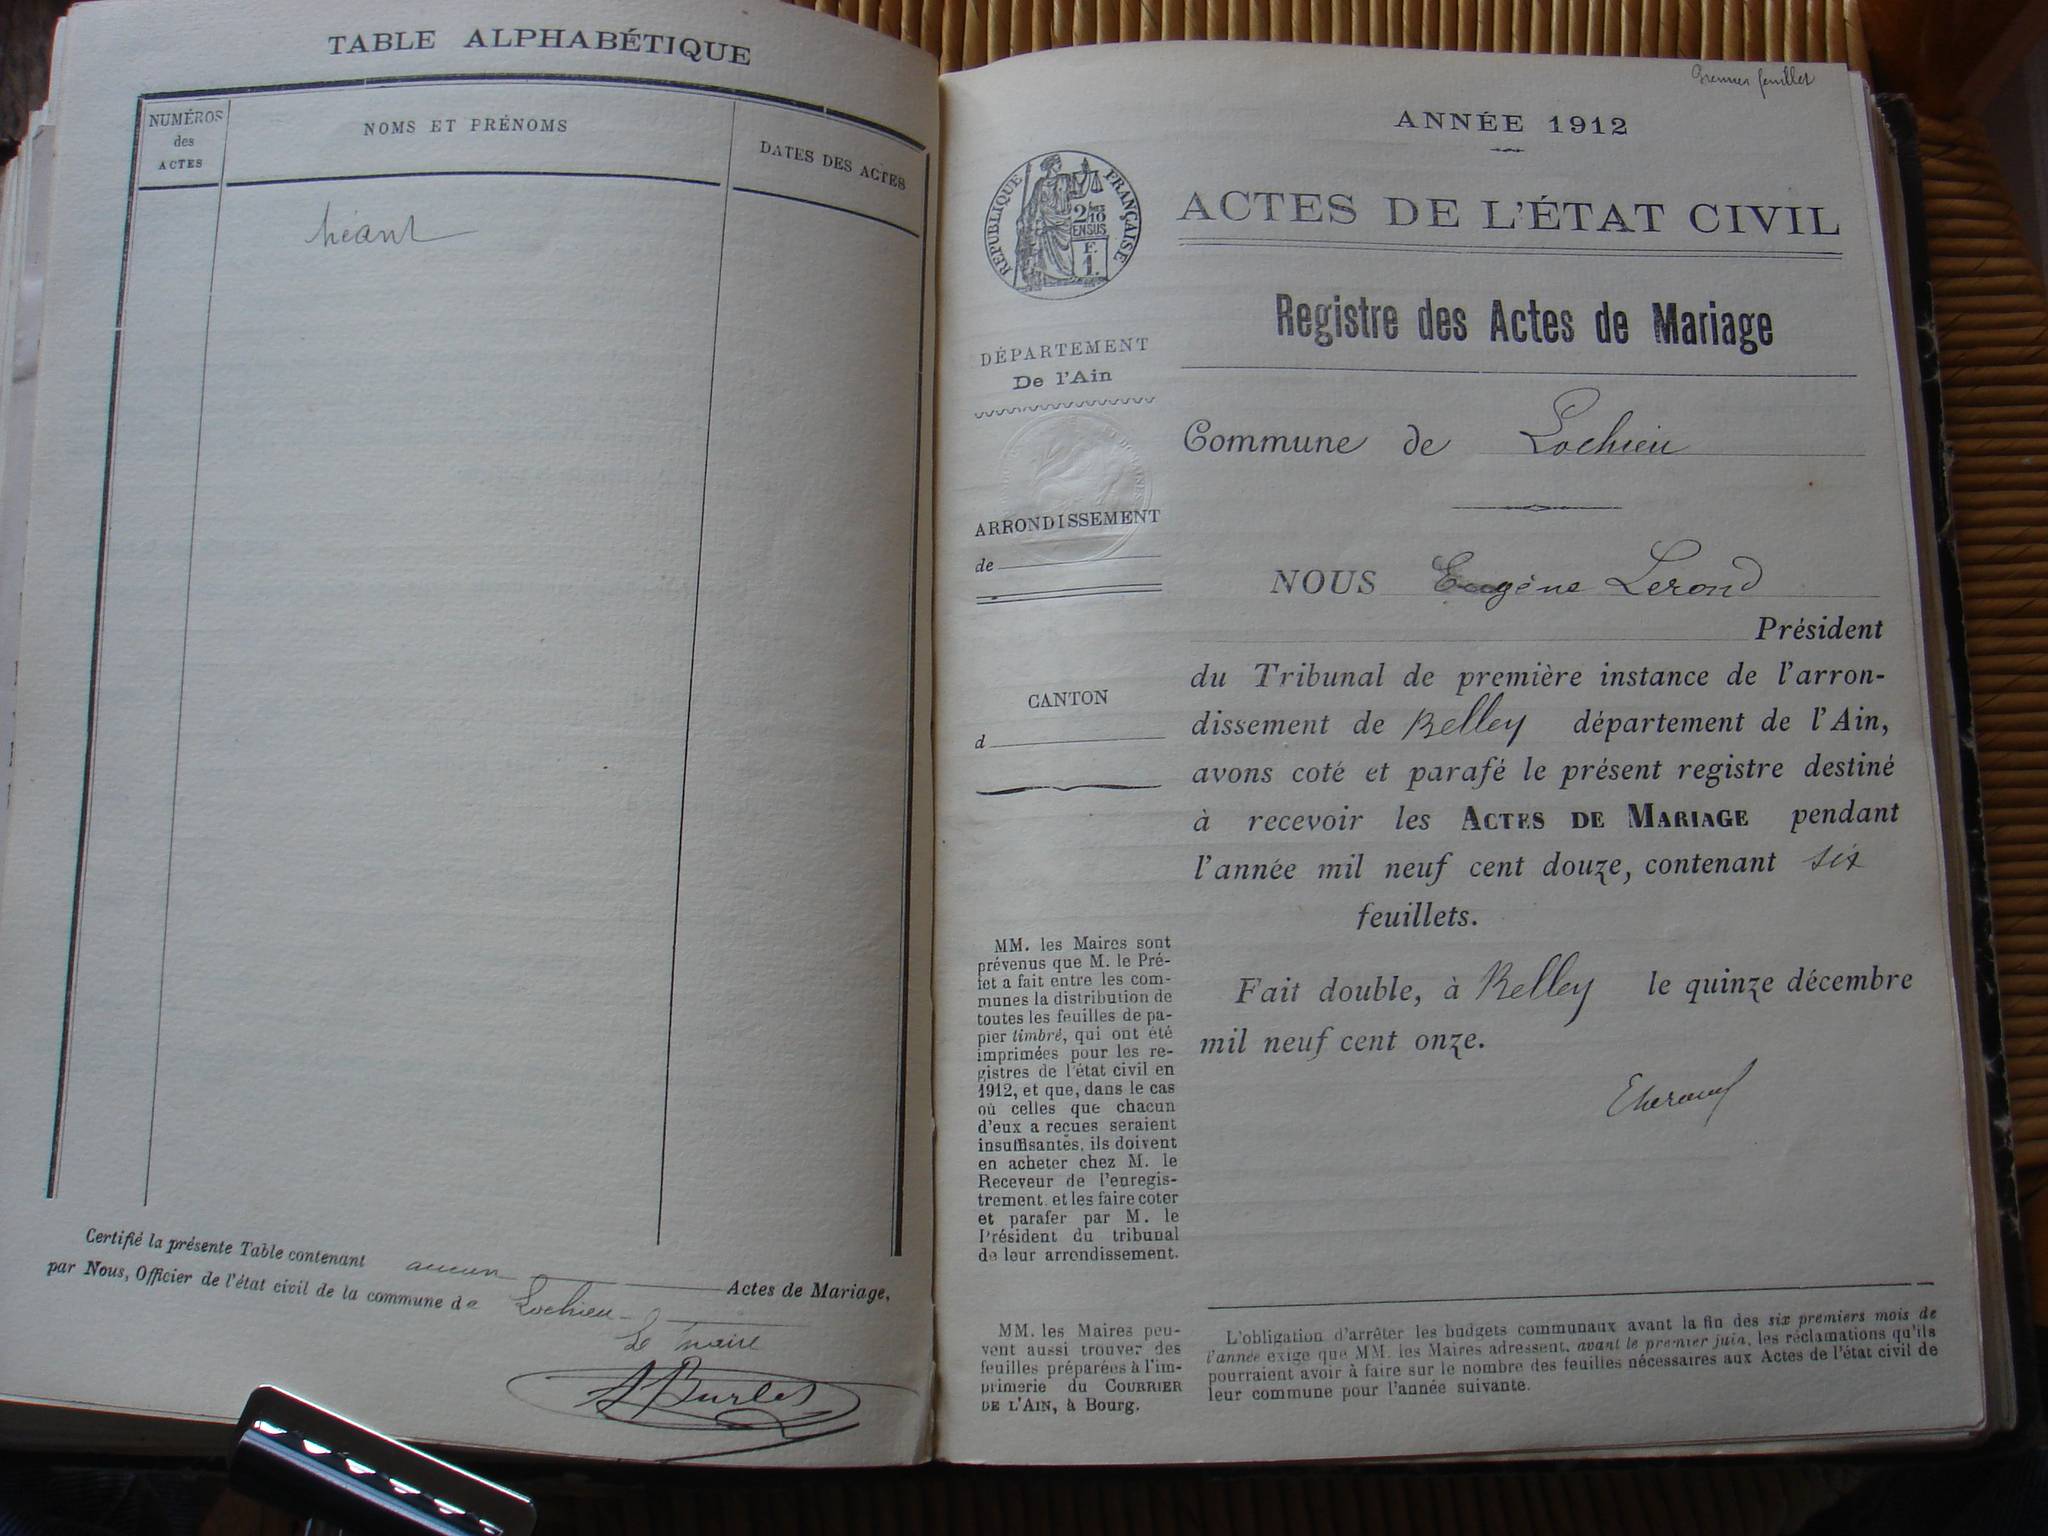 TABLE ALPHABÉTIQUE
NUMÉROS
des
ACTES
NOMS ET PRÉNOMS
DATES DES ACTES
Néant
Certifié la présente Table contenant aucun Actes de Mariage,
par Nous, Officier de l'état civil de la commune de Lochieu
Le maire
Burlet
Premier feuillet
ANNÉE 1912
RÉPUBLIQUE FRANÇAISE
2/10
EN SUS
F.
1.
ACTES DE L'ÉTAT CIVIL
Registre des Actes de Mariage
DÉPARTEMENT
De l'Ain
ARRONDISSEMENT
de
CANTON
d
Commune de Lochieu
NOUS Eugène Lerond
Président
du Tribunal de première instance de l'arron-
dissement de Belley département de l'Ain,
avons coté et parafé le présent registre destiné
à recevoir les ACTES DE MARIAGE pendant
l'année mil neuf cent douze, contenant six
feuillets.
Fait double, à Belley le quinze décembre
mil neuf cent onze.
MM. les Maires sont
prévenus que M. le Pré-
fet a fait entre les com-
munes la distribution de
toutes les feuilles de pa-
pier timbré, qui ont été
imprimées pour les re-
gistres de l'état civil en
1912, et que, dans le cas
où celles que chacun
d'eux a reçues seraient
insuffisantes, ils doivent
en acheter chez M. le
Receveur de l'enregis-
trement et les faire coter
et parafer par M. le
Président du tribunal
de leur arrondissement.
MM. les Maires peu-
vent aussi trouver des
feuilles préparées à l'im-
primerie du COURRIER
DE L'AIN, à Bourg.
L'obligation d'arrêter les budgets communaux avant la fin des six premiers mois de
l'année exige que MM. les Maires adressent, avant le premier juin, les réclamations qu'ils
pourraient avoir à faire sur le nombre des feuilles nécessaires aux Actes de l'état civil de
leur commune pour l'année suivante.